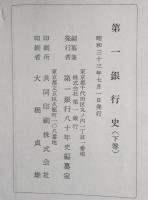 第一銀行史〈下巻〉
昭和三十三年七月一日発行
東京都千代田区丸ノ内一丁目一番地
株式会社第一銀行
編纂兼発行者
第一銀行八十年史編纂室
東京都文京区久堅町一〇八番地
印刷所
共同印刷株式会社
印刷者
大橋貞雄